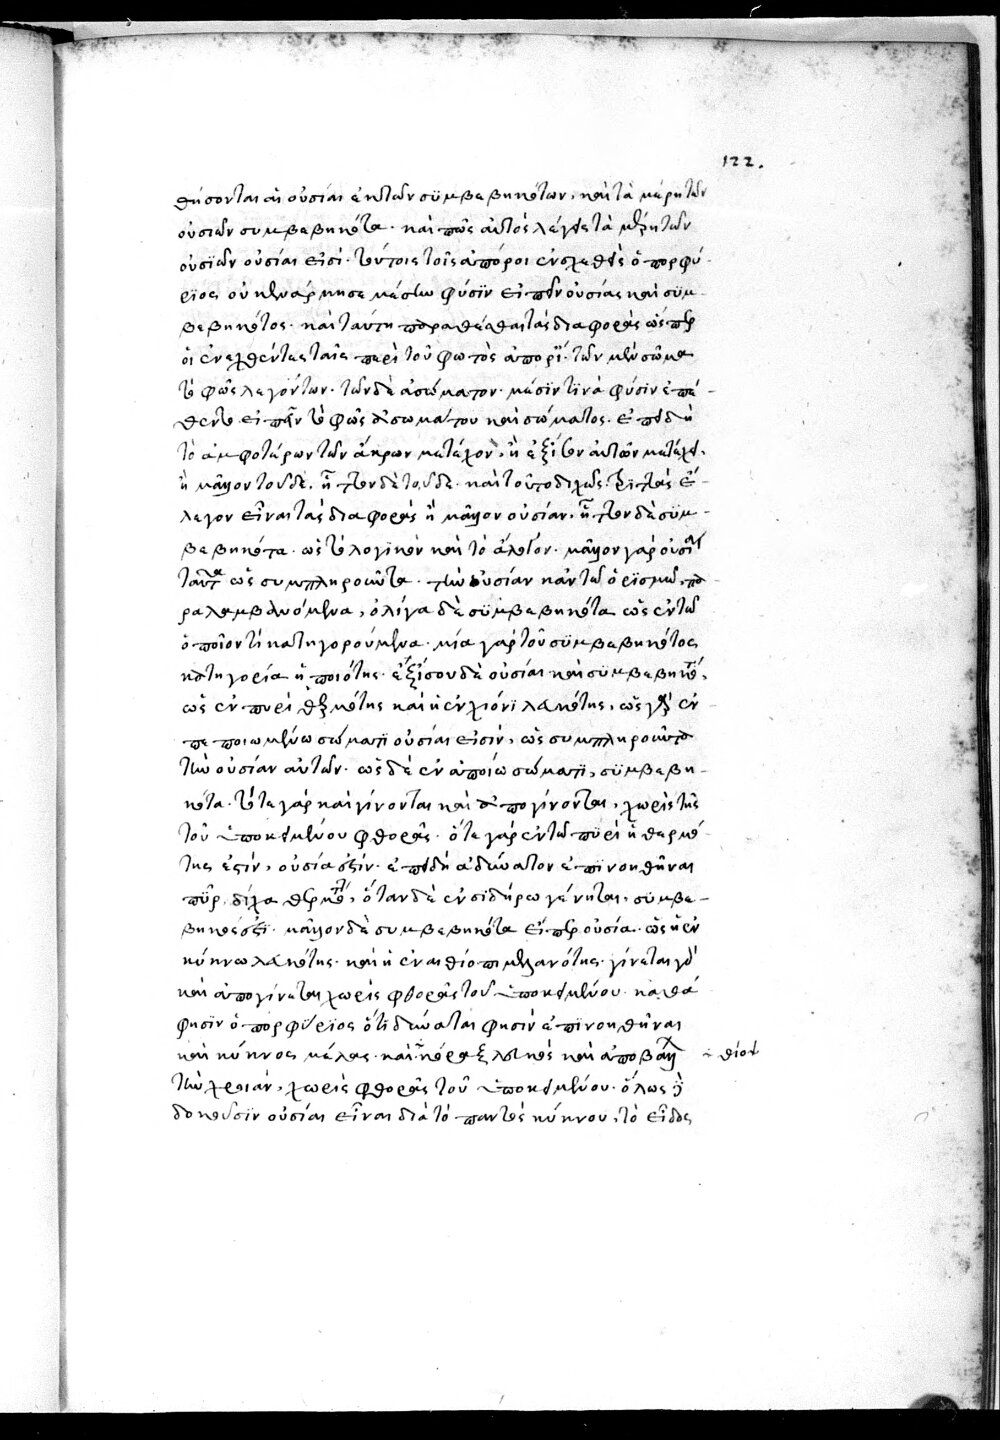 122.
θήσονται αἱ οὐσίαι ἐκ τῶν συμβεβηκότων, καὶ τὰ μέρη τῶν
οὐσιῶν συμβεβηκότα. καὶ πῶς αὐτὸς λέγει τὰ μέρη τῶν
οὐσιῶν οὐσίαι εἰσί. τούτοις τοῖς ἀπόροι ἐνσχεθεὶς ὁ πορφύ-
ριος οὐκ ἐνάρκησε μέσην φύσιν εἰπεῖν οὐσίας καὶ συμ-
βεβηκότος. καὶ ταύτῃ παραθέσθαι τὰς διαφορὰς ὥσπερ
οἱ ἐνεχθέντες ταῖς περὶ τοῦ φωτὸς ἀπορί. τῶν μὲν σῶμα
τὸ φῶς λεγόντων. τῶν δὲ ἀσώματον. μέσιν τινὰ φύσιν ἐπεί-
θεντο εἰπεῖν τὸ φῶς ἀσωμάτου καὶ σώματος. ἐπειδὴ
τὸ ἀμφοτέρων τῶν ἄκρων μετέχον, ἢ ἐξίσου αὐτῶν μετέχει,
ἢ μᾶλλον τοῦδε, ἧττον δὲ τοῦδε. καὶ τοῦτο διχῶς. τριττὰς ἔ-
λεγον εἶναι τὰς διαφορὰς ἢ μᾶλλον οὐσίαν, ἧττον δὲ συμ-
βεβηκότα. ὡς τὸ λογικὸν καὶ τὸ ἄλογον. μᾶλλον γὰρ οὐσίαι
ταῦτα ὡς συμπληροῦντα. τὴν οὐσίαν κἀν τῷ ὁρισμῷ, πα-
ραλαμβανόμενα, ὀλίγα δὲ συμβεβηκότα ὡς ἐν τῷ
ὁποῖον τί κατηγορούμενα. μία γὰρ τοῦ συμβεβηκότος
κατηγορία ἡ ποιότης. ἐξίσου δὲ οὐσίαι καὶ συμβεβηκό,
ὡς ἐν πυρὶ θερμότης καὶ ἡ ἐν χιόνι λευκότης, ὡς γὰρ ἐν
πεποιωμένω σώματι οὐσίαι εἰσὶν, ὡς συμπληροῦντα
τὴν οὐσίαν αὐτῶν. ὡς δὲ ἐν ἀποίω σώματι, συμβεβη-
κότα. τότε γὰρ καὶ γίνονται καὶ ἀπογίνονται, χωρὶς τῆς
τοῦ ὑποκειμένου φθορᾶς. ὅτε γὰρ ἐν τῷ πυρὶ ἡ θερμό-
της ἐστὶν, οὐσία ἐστίν. ἐπειδὴ ἀδύνατον ἐπινοηθῆναι
πῦρ, δίχα θερμότ, ὅταν δὲ ἐν σιδήρω γένηται, συμβε-
βηκός ἐστι. μᾶλλον δὲ συμβεβηκότα εἴπερ οὐσία. ὡς ἡ ἐν
κύκνω λευκότης. καὶ ἡ ἐν αἰθίοπι μελανότης. γίνεται γὰρ
καὶ ἀπογίνεται χωρὶς φθορᾶς τοῦ ὑποκειμένου. καθά
φησιν ὁ πορφύριος ὅτι δύναται φησὶν ἐπινοηθῆναι
καὶ κύκνος μέλας. καὶ κόραξ λευκὸς καὶ ἀποβάλλ
τὴν χροιὰν, χωρὶς φθορᾶς τοῦ ὑποκειμένου. ὅλως δὲ
δοκοῦσιν οὐσίαι εἶναι διὰ τὸ παντὸς κύκνου, τὸ εἶδος